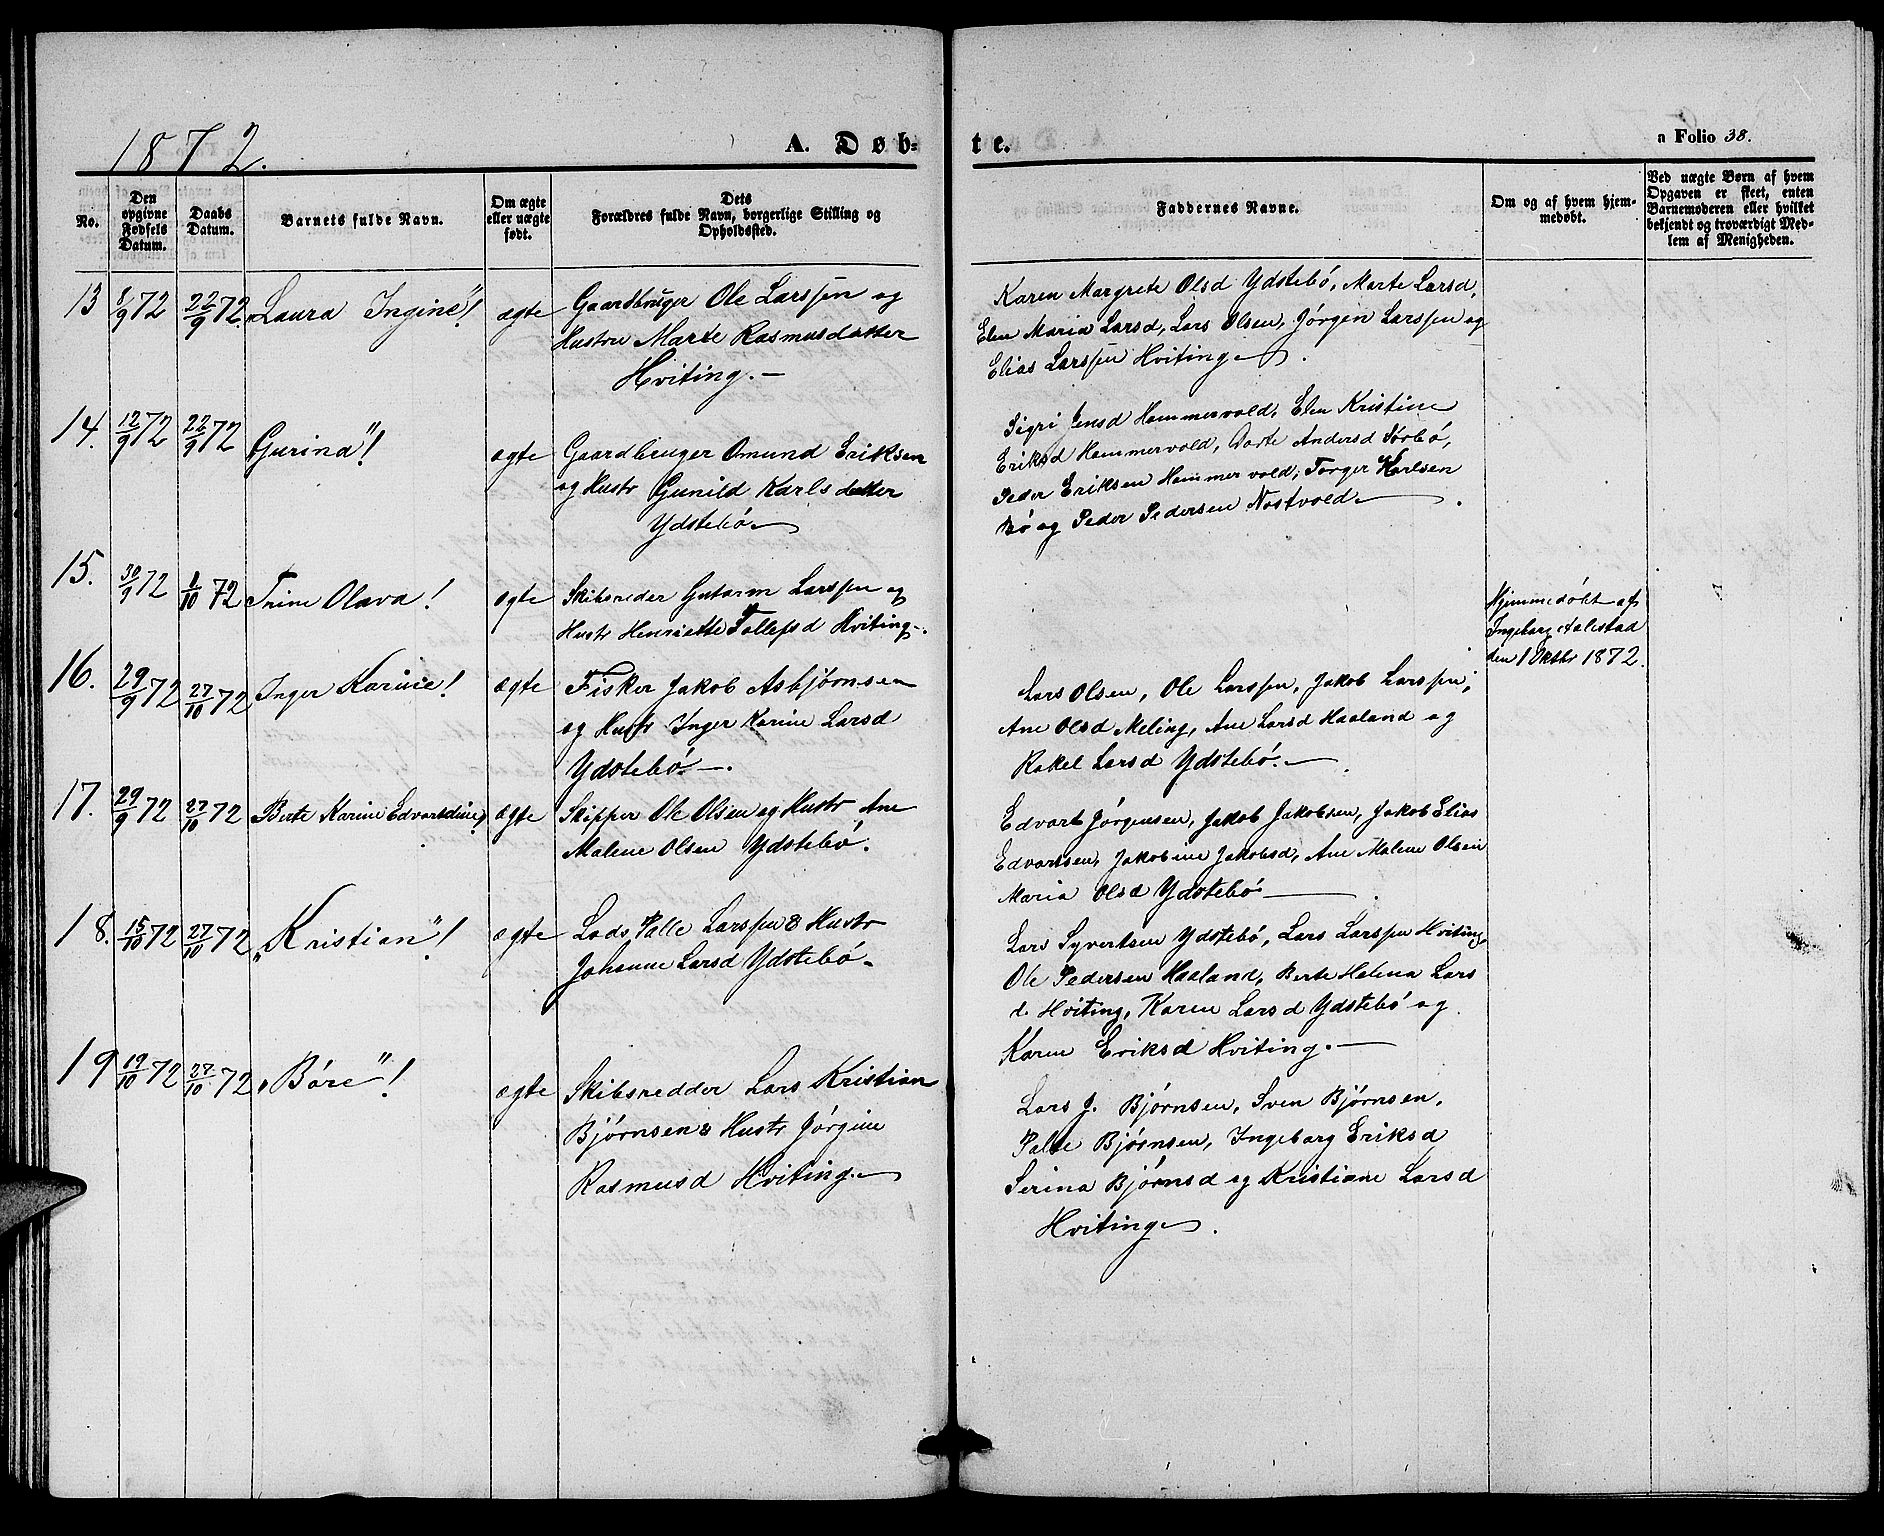 1872.
A. Døb-
te.
a Folio 38.
No.
Den opgivne Fødsels Datum.
Daabs Datum.
Barnets fulde Navn.
Om ægte eller uægte født.
Dets Forældres fulde Navn, borgerlige Stilling og Opholdssted.
Faddernes Navne.
Om og af hvem hjem-
medøbt.
Ved uægte Børn af hvem
Opgaven er skeet, enten
Barnemoderen eller hvilket
bekjendt og troværdigt Med-
lem af Menigheden.
13 8/9 72 22/9 72. „Laura Ingine"! ægte Gaardbruger Ole Larssen og
Hustru Marte Rasmusdatter
Hviting.—
Karen Margrete Olsd Ydstebö, Marte Larsd,
Elen Maria Larsd, Lars Olsen, Jörgen Larssen og
Elias Larssen Hviting.
14. 12/9 72 22/9 72 Gurina"! ægte Gaardbruger Omund Eriksen
og Hustr Gunild Karlsdatter
Ydstebö
Sigri Jensd Hammervold, Elen Kristine
Eriksd Hammervold, Dorte Andersd Sörbö,
Peder Eriksen Hammervold, Torger Karlsen
Bö og Peder Pedersen Nostvold.
15. 30/9 72 1/10 72 Trine Olava! ægte Skibsreder Gutorm Larssen og
Hustr Henriette Tollefsd Hviting.
Hjemmedöbt af
Ingeborg Aalestad
den 1 Oktbr 1872.
16. 29/9 72 27/10 72 Inger Karine! ægte Fisker Jakob Asbjørnsen
og Hustr Inger Karine Larsd
Ydstebö—.
Lars Olsen, Ole Larssen, Jakob Larssen,
Ane Olsd Meling, Ane Larsd Haaland og
Rakel Larsd Ydstebö.—
17. 29/9 72 27/10 72 Berte Karine Edvardine! ægte Skipper Ole Olsen og Hustr Ane
Malene Olsen Ydstebö.
Edvart Jörgensen, Jakob Jakobsen, Jakob Elias
Edvartsen, Jakobine Jakobsd, Ane Malene Olsen
Maria Olsd Ydstebö—
18. 15/10 72 27/10 72 „Kristian"! ægte Lods Palle Larssen & Hustr
Johanne Larsd Ydstebö.
Lars Syvertsen Ydstebö, Lars Larssen Hviting,
Ole Pedersen Haaland, Berte Helena Lars
d. Hviting, Karen Larsd Ydstebö og
Karen Eriksd Hviting.—
19 19/10 72 27/10 72 „Böre"! ægte Skibsredder Lars Kristian
Bjørnsen & Hustr Jörgine
Rasmusd Hviting.
Lars J. Bjørnsen, Sven Bjørnsen,
Palle Bjørnsen, Ingeborg Eriksd
Serina Bjørnsd og Kristiane Larsd
Hviting.